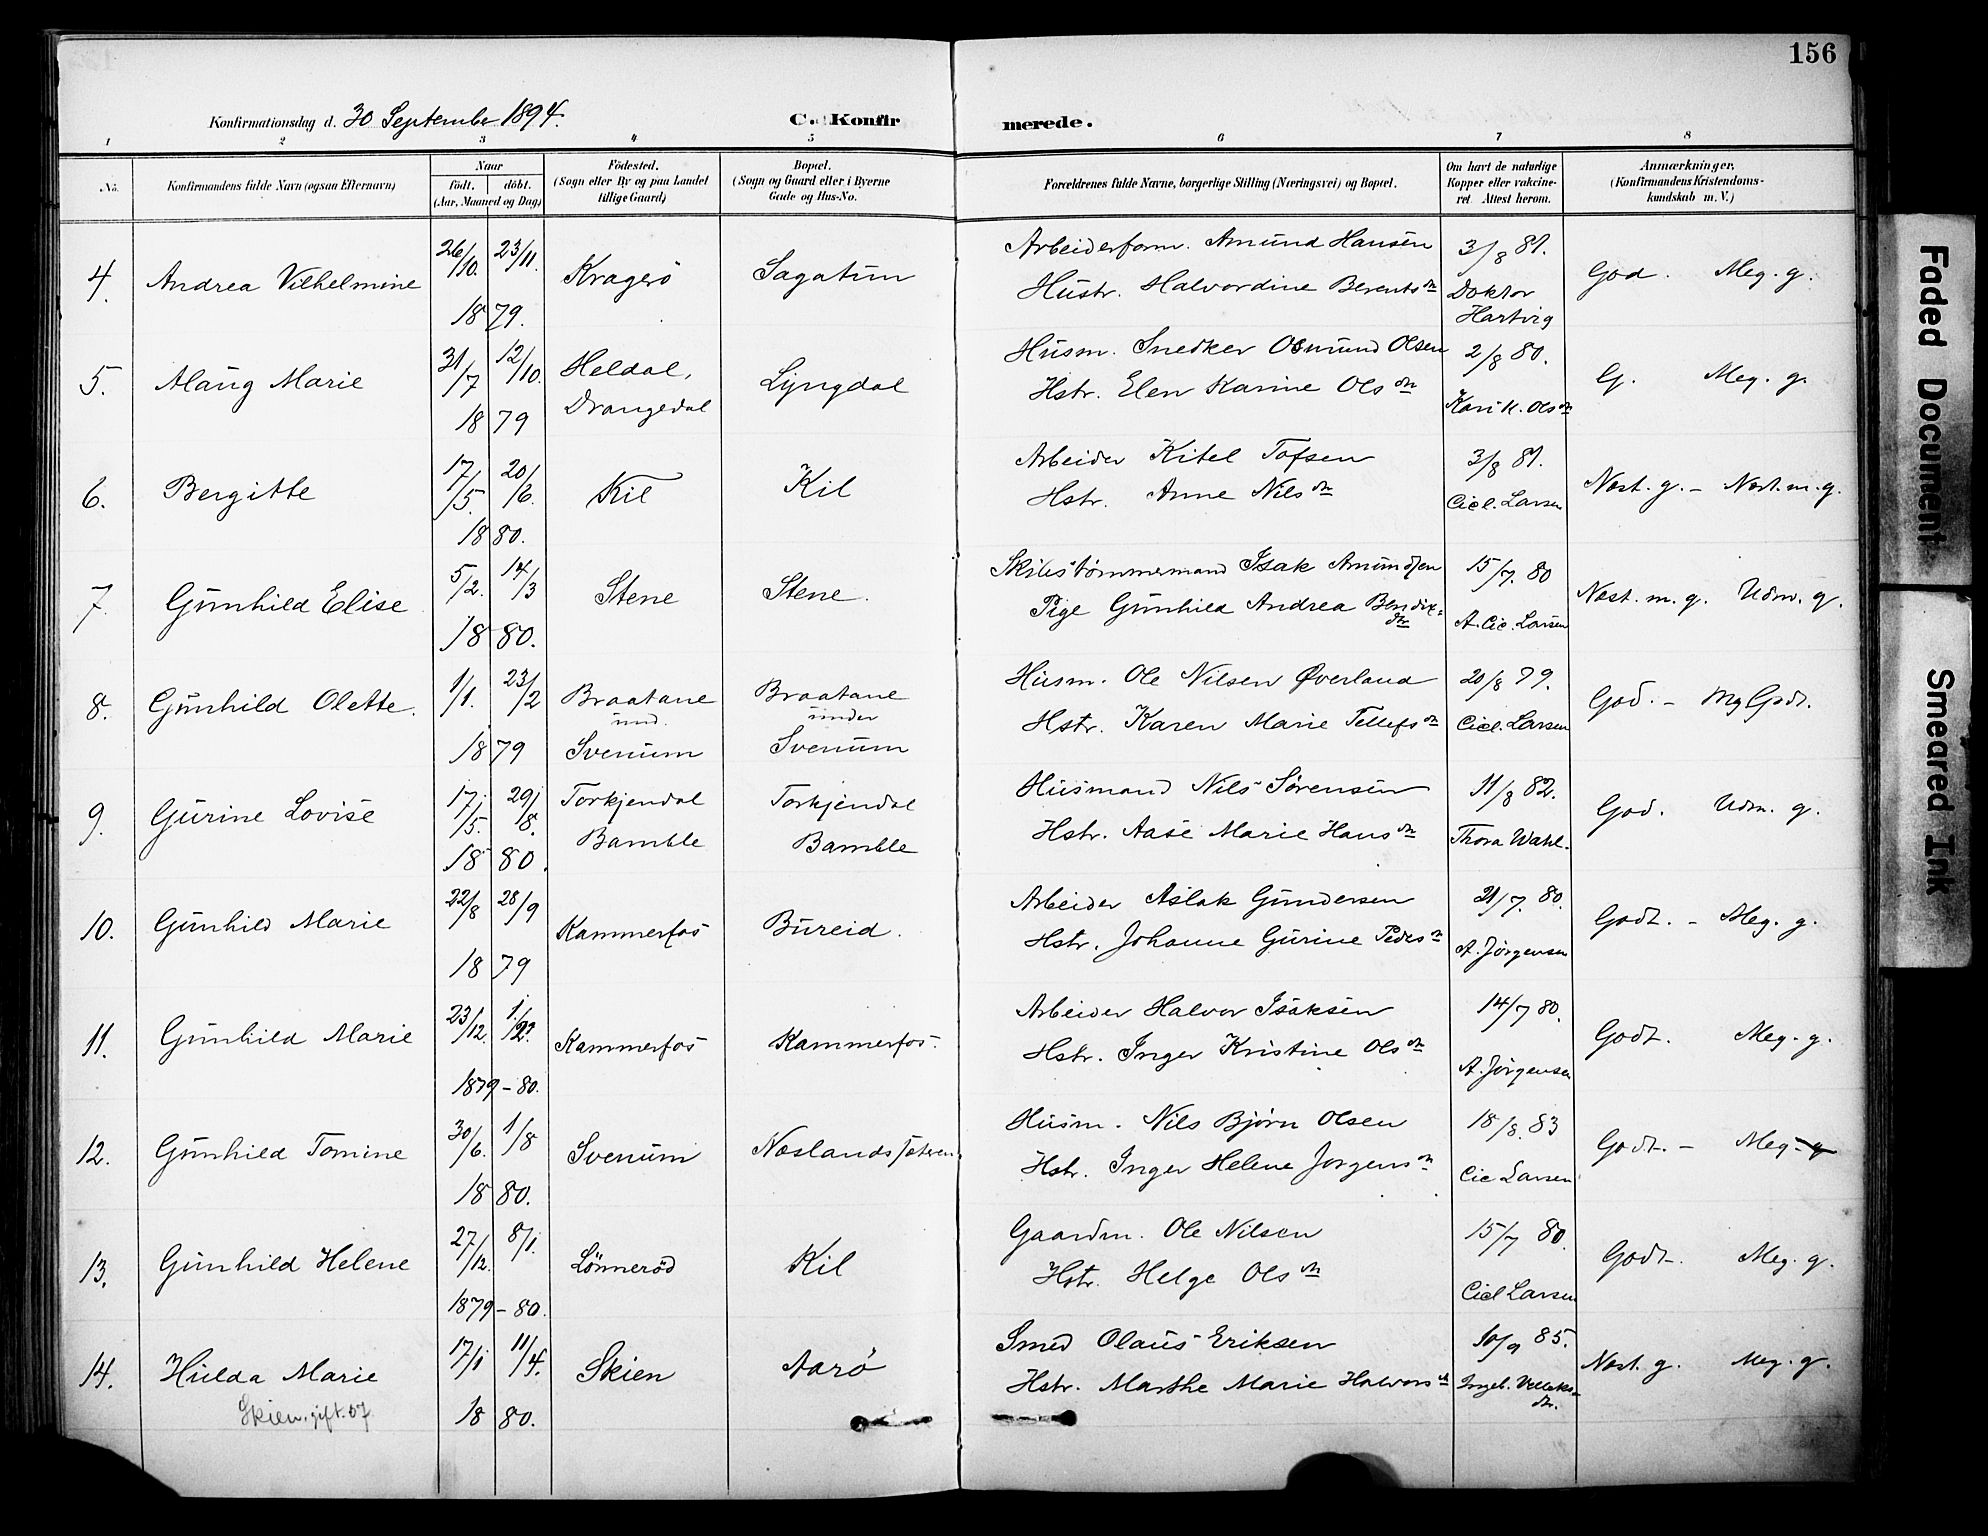 156
Konfirmationsdag d. 30 September 1894.
C. Konfirmerede.
1 2 3 4 5 6 7 8
No.
Konfirmandens fulde Navn (ogsaa Efternavn)
Naar
födt. döbt.
(Aar, Maaned og Dag)
Födested.
(Sogn eller By og paa Landet
tillige Gaard)
Bopæl.
(Sogn og Gaard eller i Byerne
Gade og Hus-No.
Forældrenes fulde Navne, borgerlige Stilling (Næringsvei) og Bopæl.
Om havt de naturlige
Kopper eller vakcine-
ret. Attest herom.
Anmærkninger,
(Konfirmandens Kristendoms-
kundskab m. V.)
4. Andrea Vilhelmine 26/10. 23/11. 1879. Kragerö Sagatun
Arbeiderform. Amund Hansen 3/8 81. God. Meg. g.
Hustr. Halvordine Berentsdtr Doktor
Hartvig
5. Alaug Marie 31/7 12/10. 1879 Heldal, Drangedal Lyngdal
Husm. Snedker Osmund Olsen 2/8 80. G. Meg. g.
Hstr. Elen Karine Olsdtr Kari K. Olsdtr
6. Bergitte 17/5. 20/6. 1880. Kil Kil
Arbeider Kitel Tofsen 3/8 81. Næst. g. – Næst. m. g.
Hstr. Anne Nilsdtr Cicl. Larsen
7. Gunhild Elise 5/2. 14/3 1880. Stene Stene.
Skibstømmermand Isak Amundsen 15/7. 80 Næst. m. g. Udm. g.
Pige Gunhild Andrea Bendix=
dtr A. Cic. Larsen
8. Gunhild Olette. 1/1. 23/2 1879 Braatane und. Svenum Braatane under Svenum
Husm. Ole Nilsen Øverland 20/8 79. God. – Mg Godt.
Hstr. Karen Marie Tellefsdtr Cicl. Larsen
9. Gurine Lovise 17/5. 29/8. 1880. Torkjendal Bamble Torkjendal Bamble
Husmand Nils Sørensen 11/8 82. God. Udm. g.
Hstr. Aase Marie Hansdtr Thora Wahl.
10. Gunhild Marie 22/8 28/9 1879 Kammerfos Bureid.
Arbeider Aslak Gundersen 21/7. 80. Godt. – Meg. g.
Hstr. Johanne Gurine Pedersdtr A. Jörgensen
11. Gunhild Marie 23/12. 1879–80. Kammerfos Kammerfos.
Arbeider Halvor Isaksen 14/7 80. Godt. Meg. g.
Hstr. Inger Kristine Olsdtr A. Jörgensen
12. Gunhild Tomine 30/6. 1/8 1880. Svenum
Husm. Nils Bjørn Olsen 18/8. 83 Godt. – Meg. g
Hstr. Inger Helene Jorgensdtr Cic Larsen
13. Gunhild Helene 27/12. 8/1. 1879–80. Lönneröd Kil
Gaardm. Ole Nilsen 15/7 80. Godt. Meg. g.
Hstr. Helge Olsdtr Cicl Larsen
14. Hulda Marie 17/1 11/4. 1880. Skien Aarö
Smed Olaus Eriksen 10/9 85. Næst. g. Meg. g.
Hstr. Marthe Marie Halvorsdtr Ingeb.
Skien. gift. 07
Faded Document
Smeared Ink